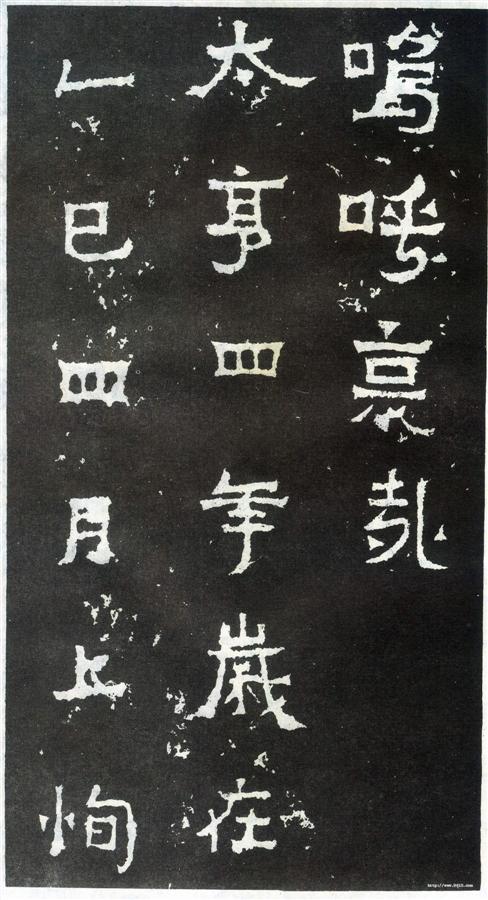 嗚呼哀哉
太亨四年歲在
乙巳四月上恂